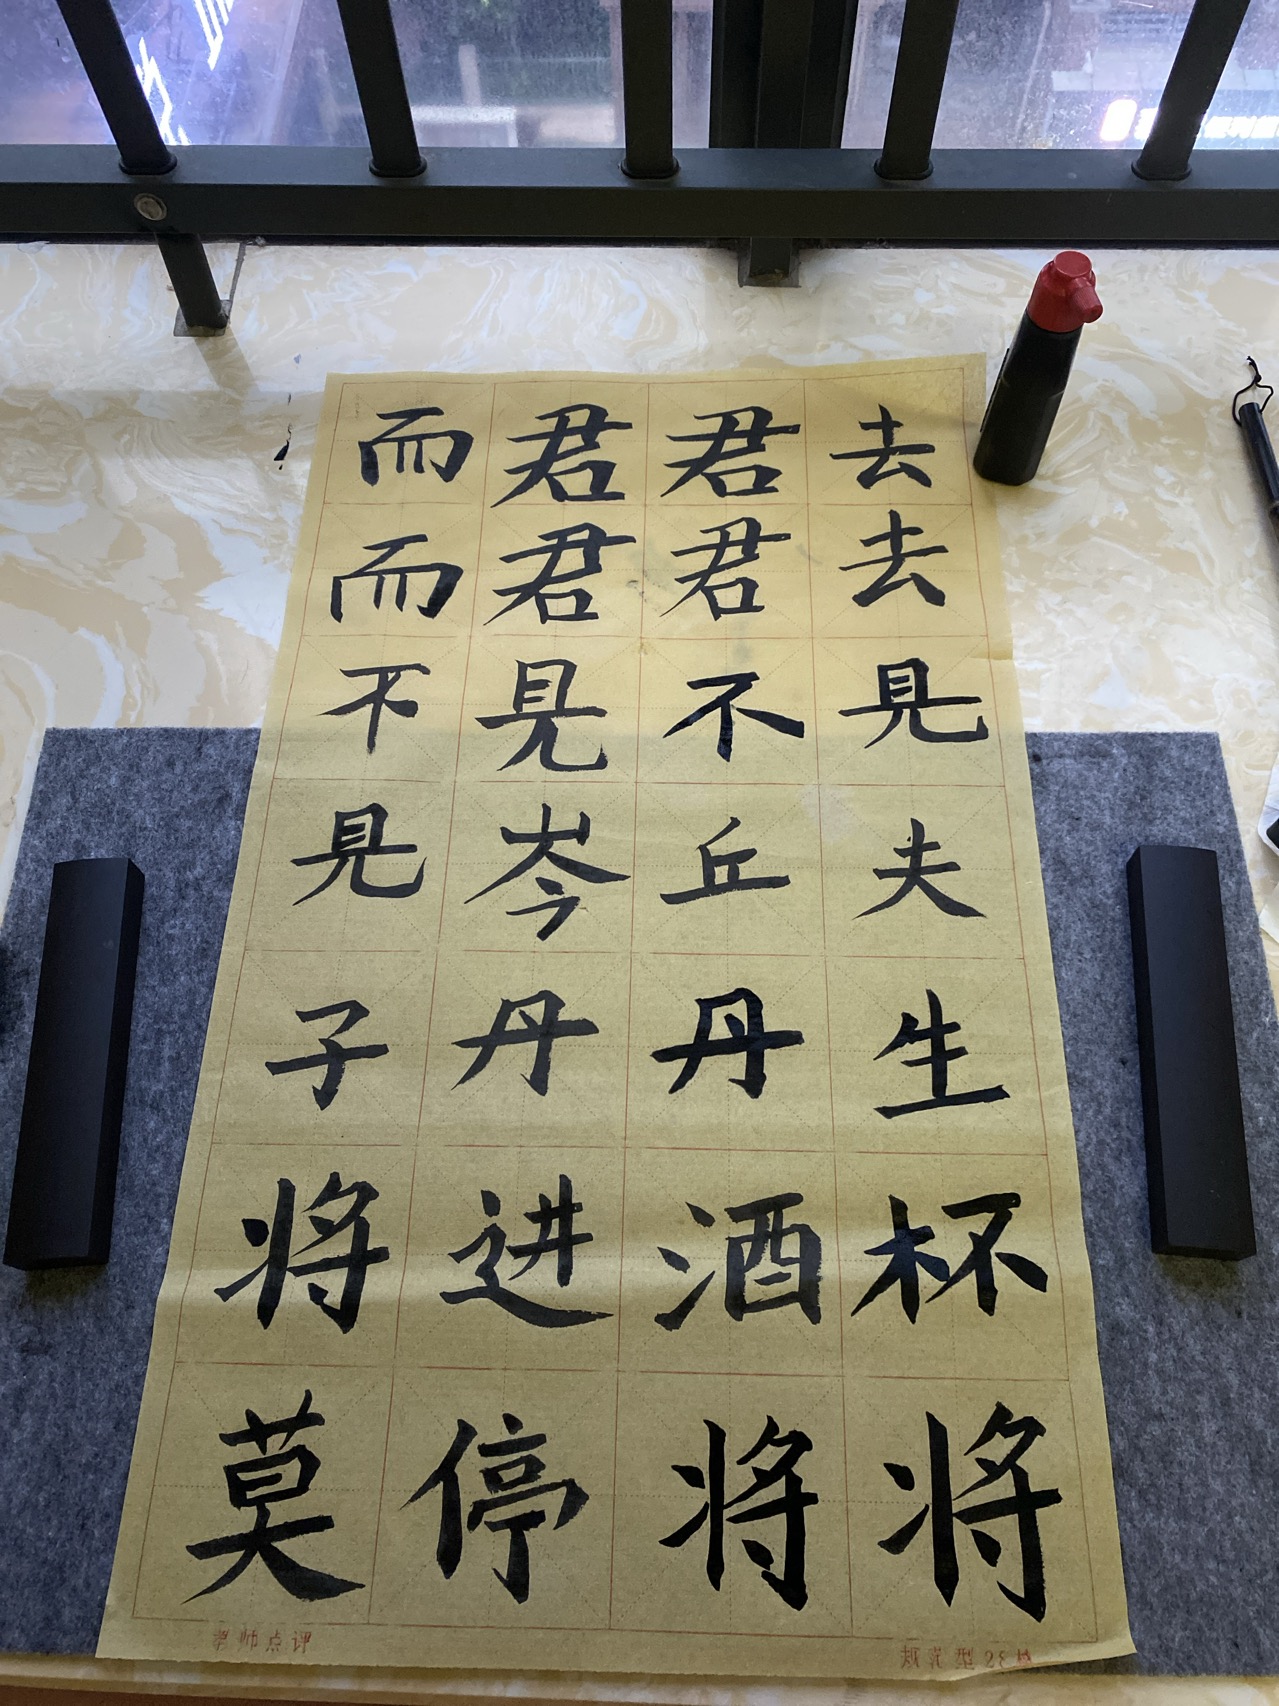 而君君去
而君君去
不见不见
见岑丘夫
子丹丹生
将进酒杯
莫停将将
老师点评
型28格